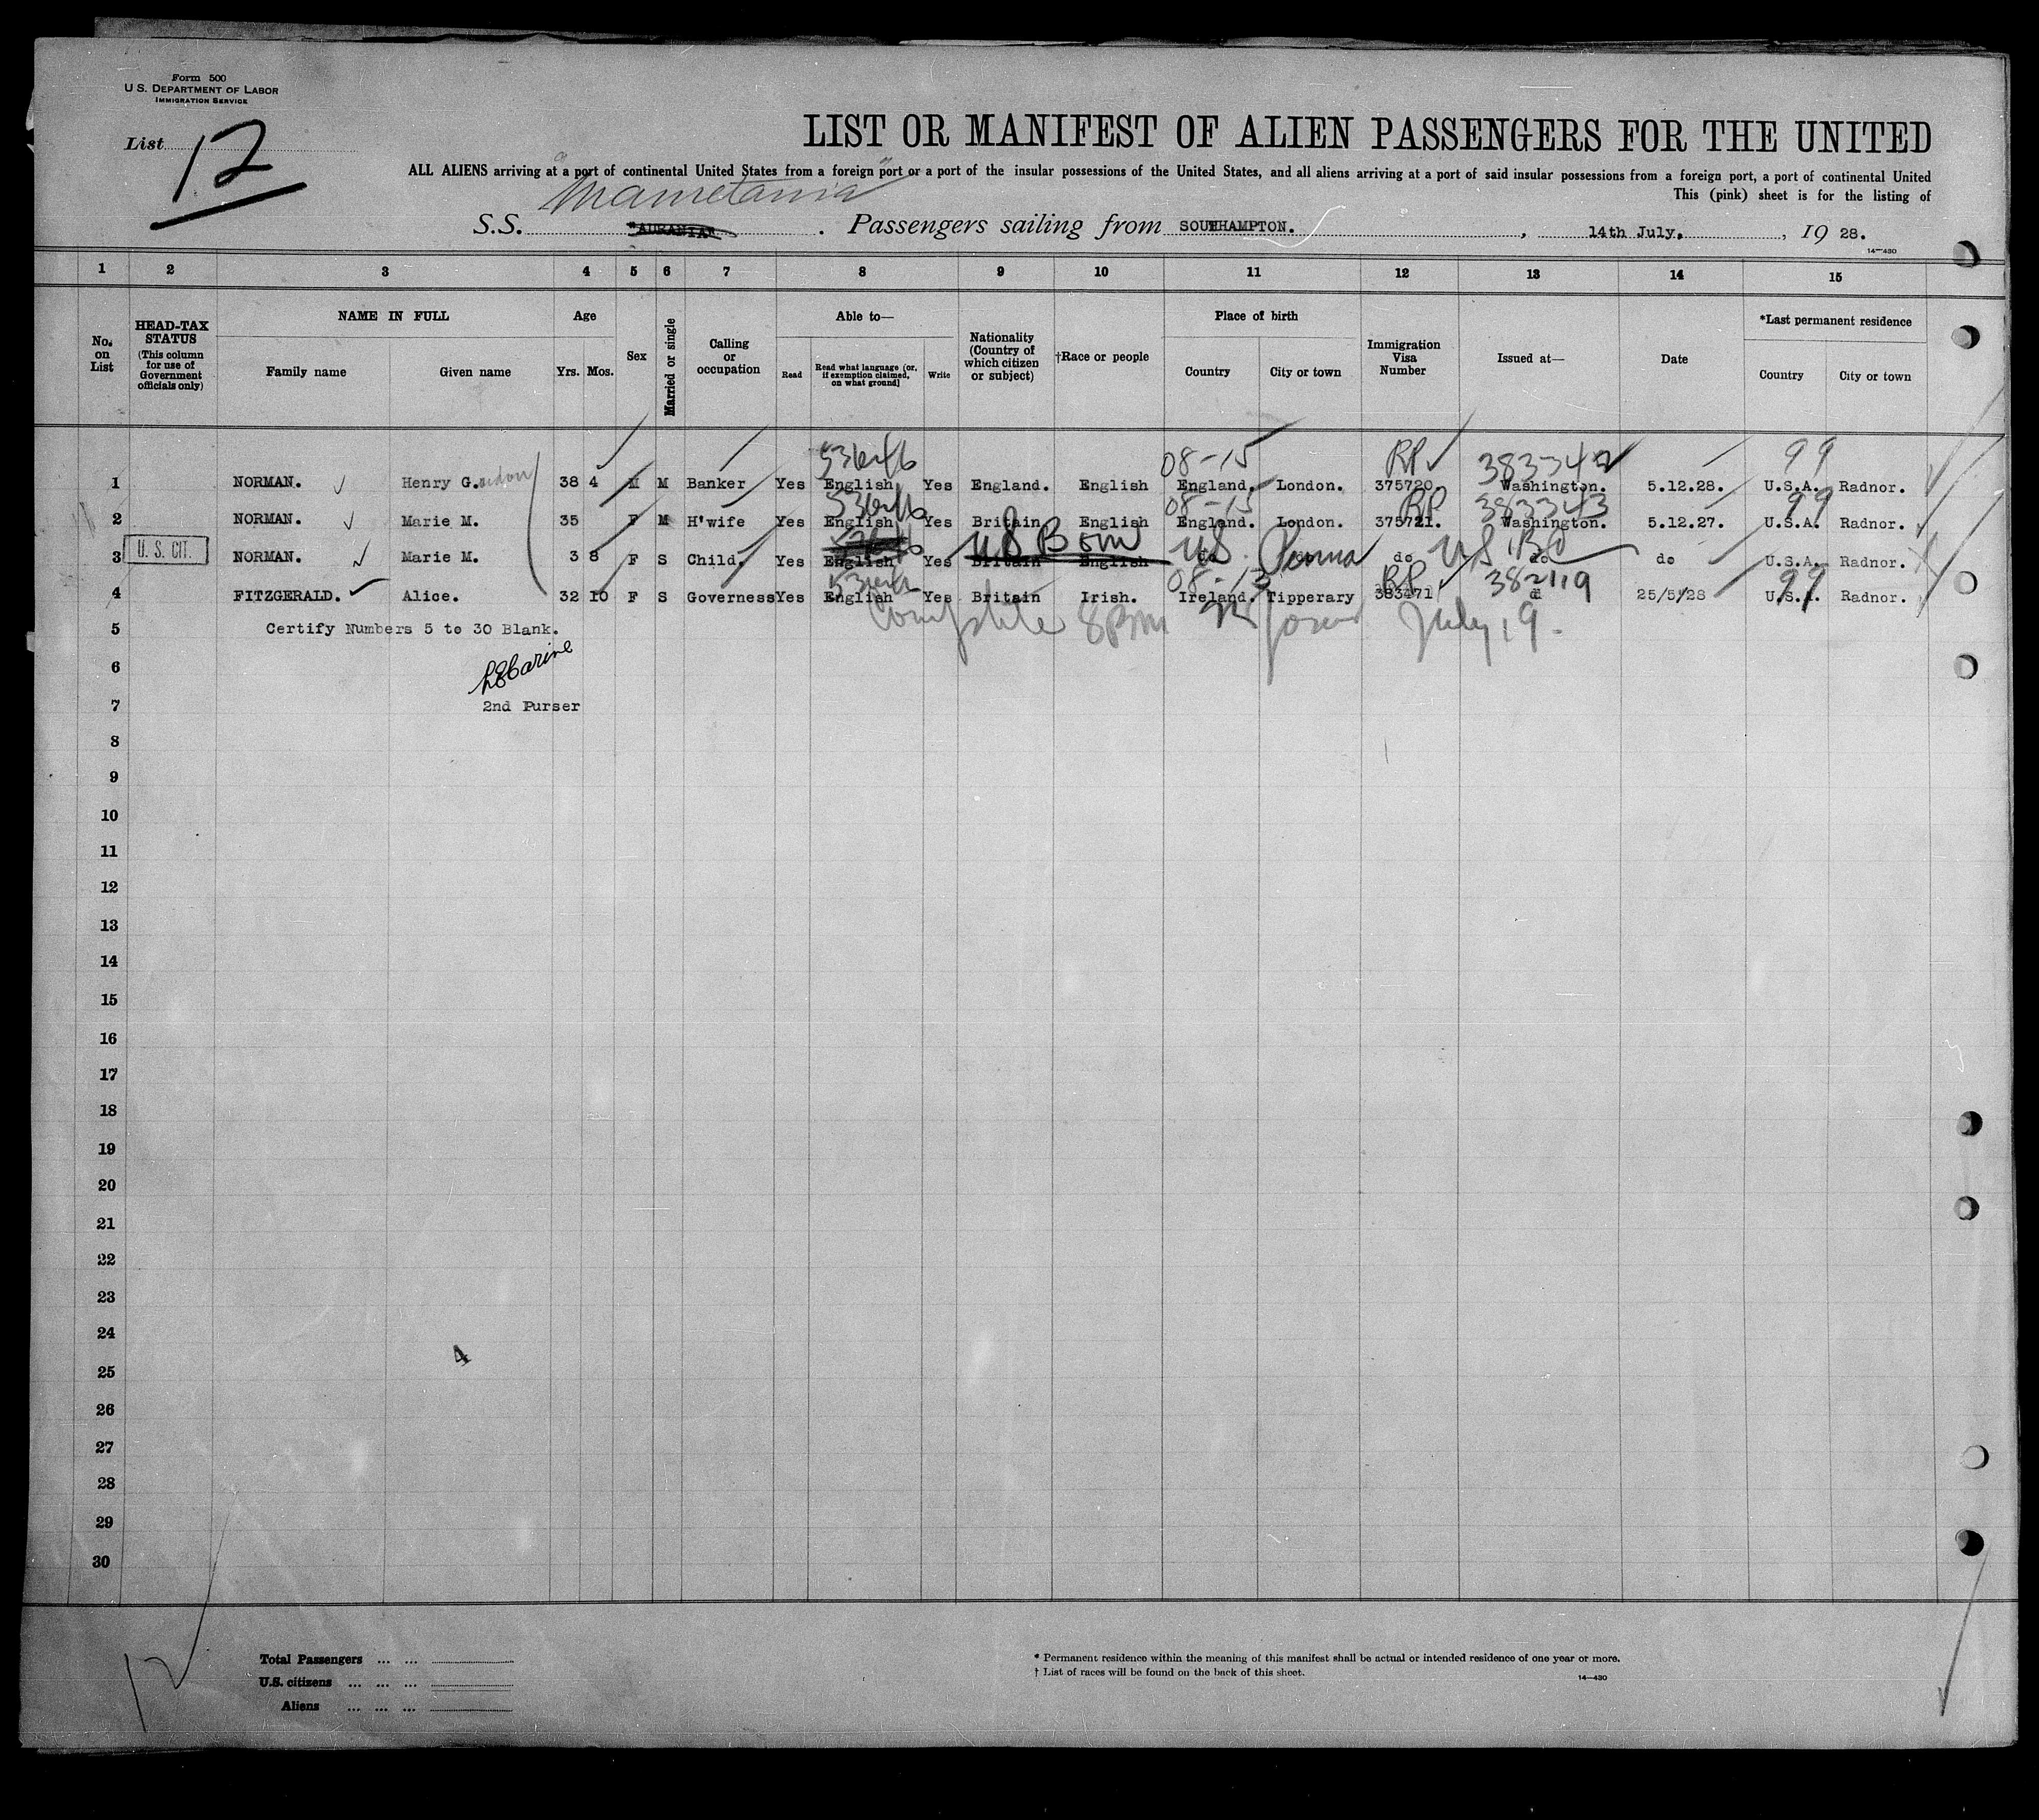 Form 500
U.S. DEPARTMENT OF LABOR
IMMIGRATION SERVICE
List 12
LIST OR MANIFEST OF ALIEN PASSENGERS FOR THE UNITED
ALL ALIENS arriving at a port of continental United States from a foreign port or a port of the insular possessions of the United States, and all aliens arriving at a port of said insular possessions from a foreign port, a port of continental United
This (pink) sheet is for the listing of
Mauretania
S.S. "AURANIA". Passengers sailing from SOUTHAMPTON. , 14th July. , 19 28.
14—430
1 2 3 4 5 6 7 8 9 10 11 12 13 14 15
No. on List
HEAD-TAX STATUS
(This column for use of Government officials only)
NAME IN FULL
Family name Given name
Age
Yrs. Mos.
Sex
Married or single
Calling or occupation
Able to—
Read
Read what language (or, if exemption claimed, on what ground)
Write
Nationality (Country of which citizen or subject)
†Race or people
Place of birth
Country City or town
Immigration Visa Number
Issued at—
Date
*Last permanent residence
Country City or town
08-15 RP 383342 99
1 NORMAN. Henry G. 38 4 M M Banker Yes English Yes England. English England. London. 375720. Washington. 5.12.28. U.S.A. Radnor.
08-15 RP 383343 99
2 NORMAN. Marie M. 35 F M H'wife Yes English Yes Britain English England. London. 375721. Washington. 5.12.27. U.S.A. Radnor.
US Born US Penna
3 U. S. CIT. NORMAN. Marie M. 3 8 F S Child. Yes English Yes Britain English do do do do U.S.A. Radnor.
08-13 RP 382119 99
4 FITZGERALD. Alice. 32 10 F S Governess Yes English Yes Britain Irish. Ireland. Tipperary 383471 25/5/28 U.S.A. Radnor.
Complete 8pm July 19.
5 Certify Numbers 5 to 30 Blank.
6
7 2nd Purser
8
9
10
11
12
13
14
15
16
17
18
19
20
21
22
23
24
4
25
26
27
28
29
30
12
Total Passengers ... ...
U.S. citizens ... ... ...
Aliens ... ... ...
* Permanent residence within the meaning of this manifest shall be actual or intended residence of one year or more.
† List of races will be found on the back of this sheet.
14—430